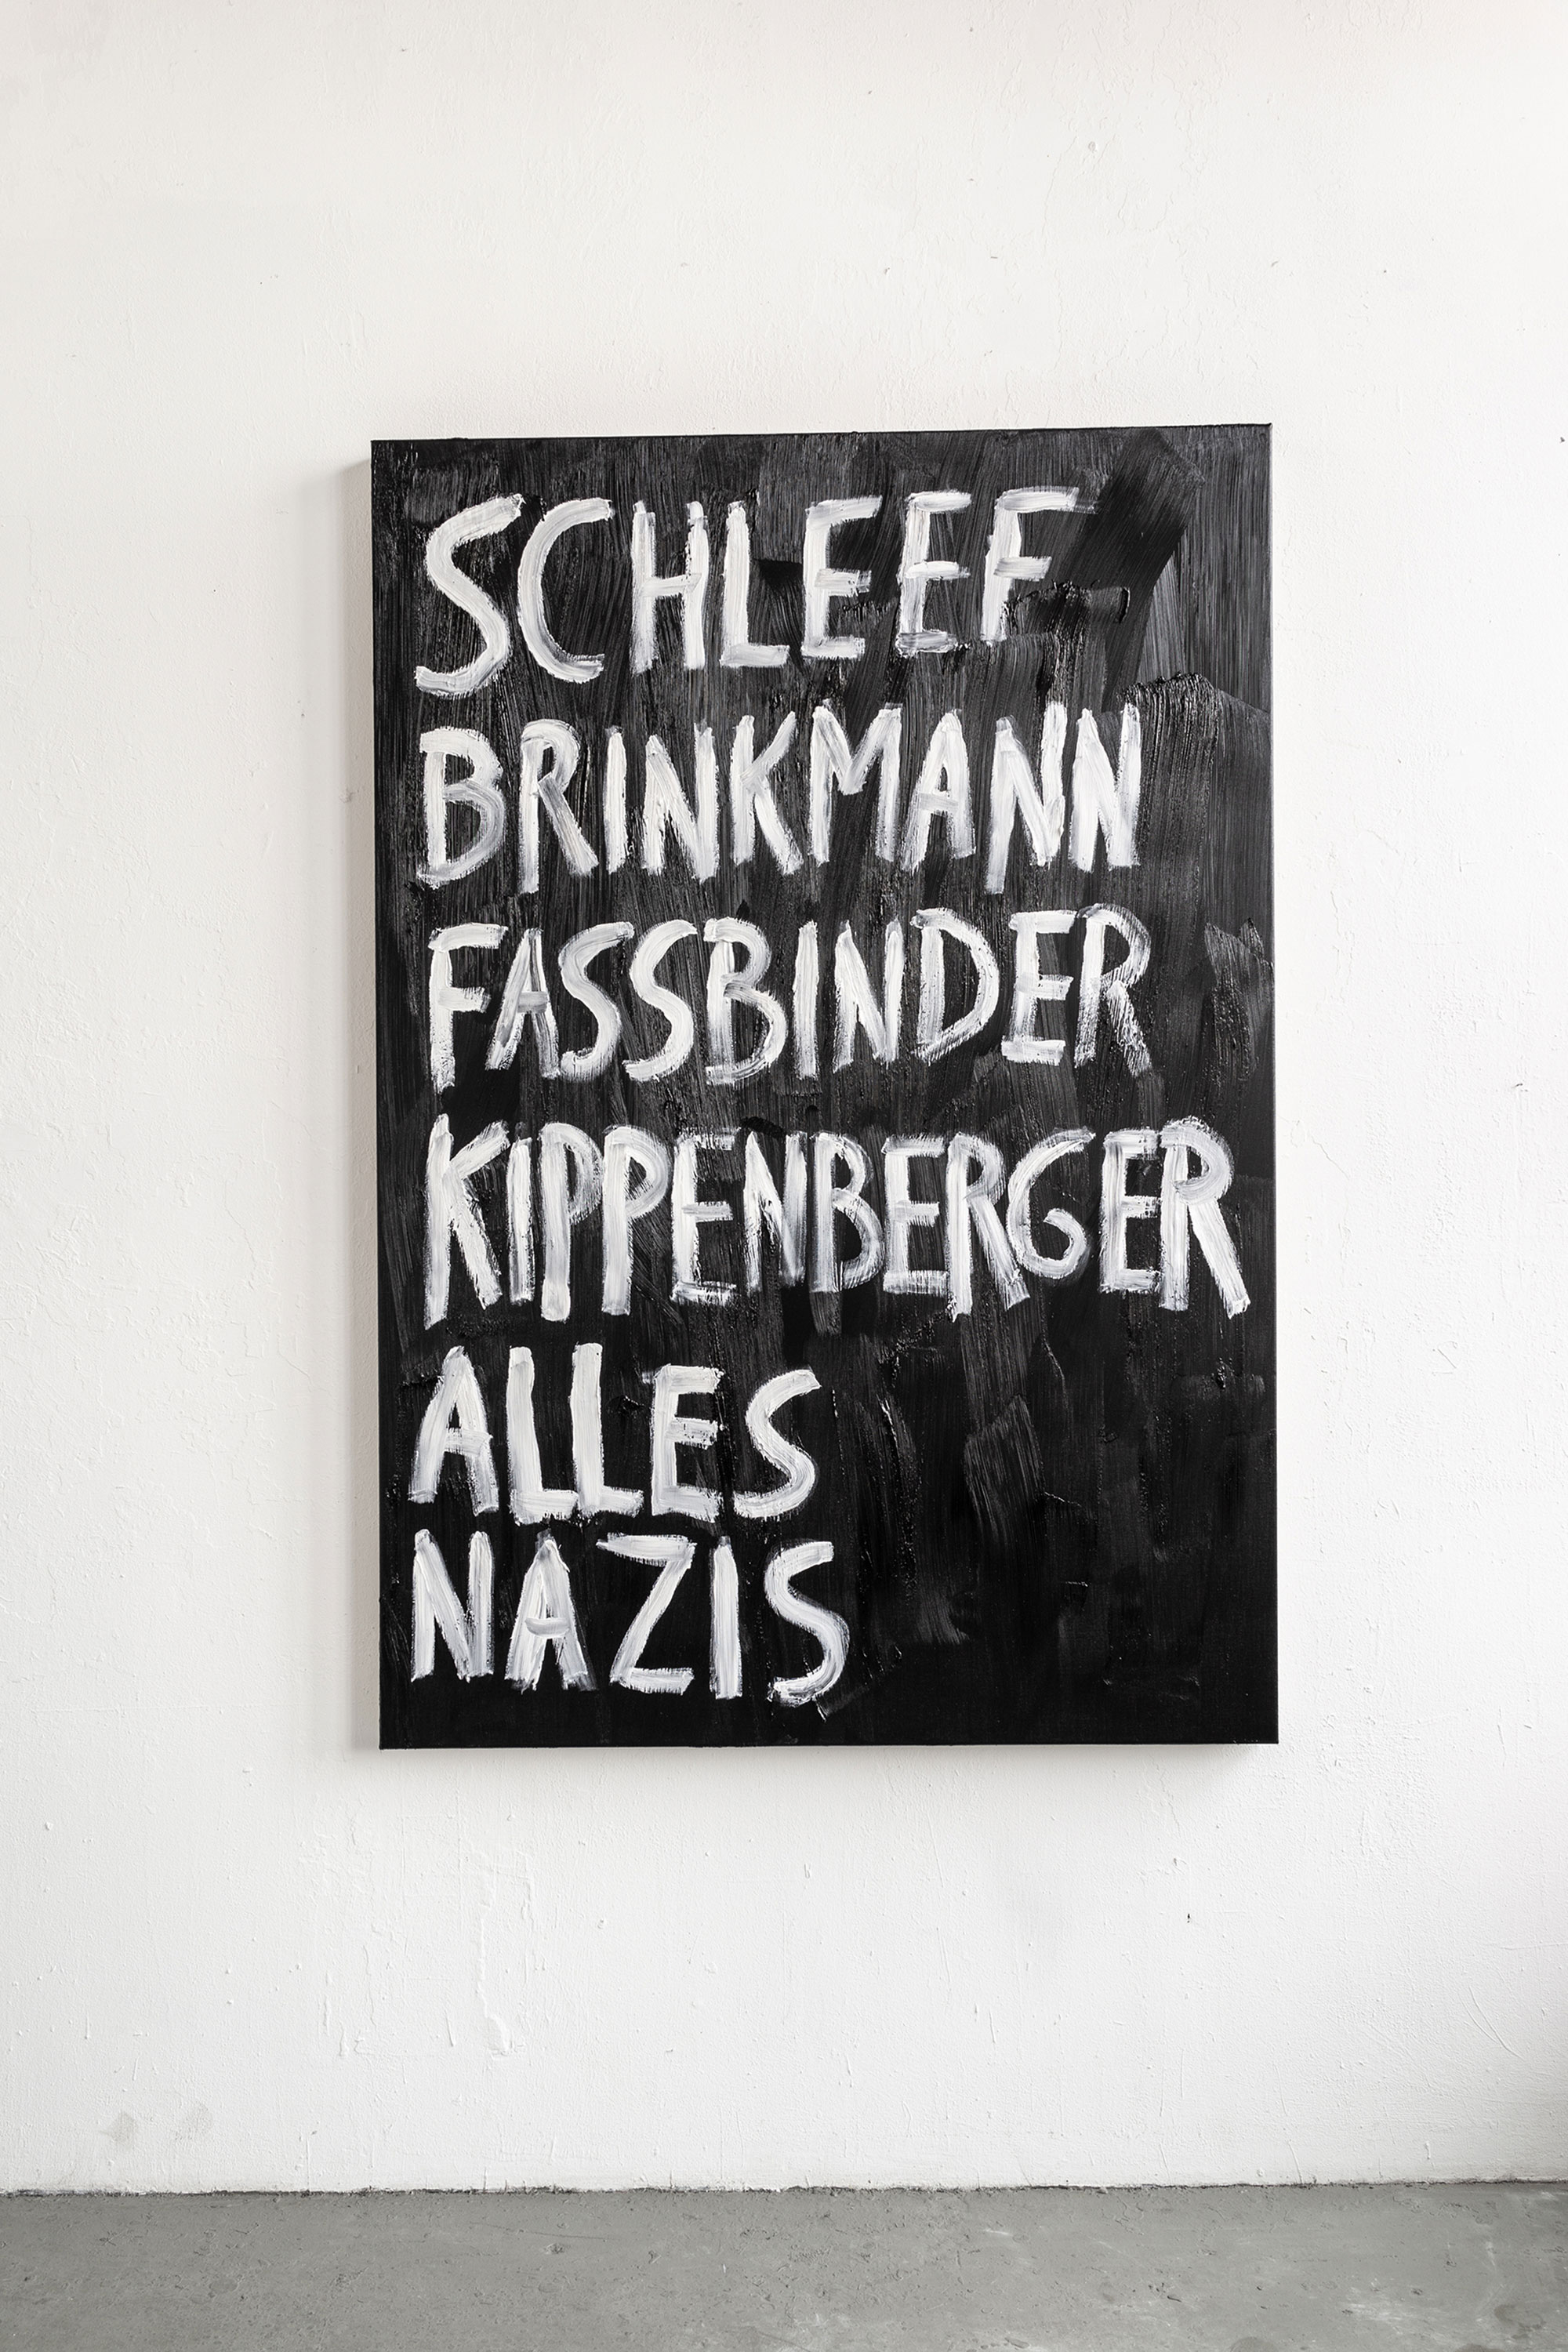 SCHLEEF
BRINKMANN
FASSBINDER
KIPPENBERGER
ALLES
NAZIS